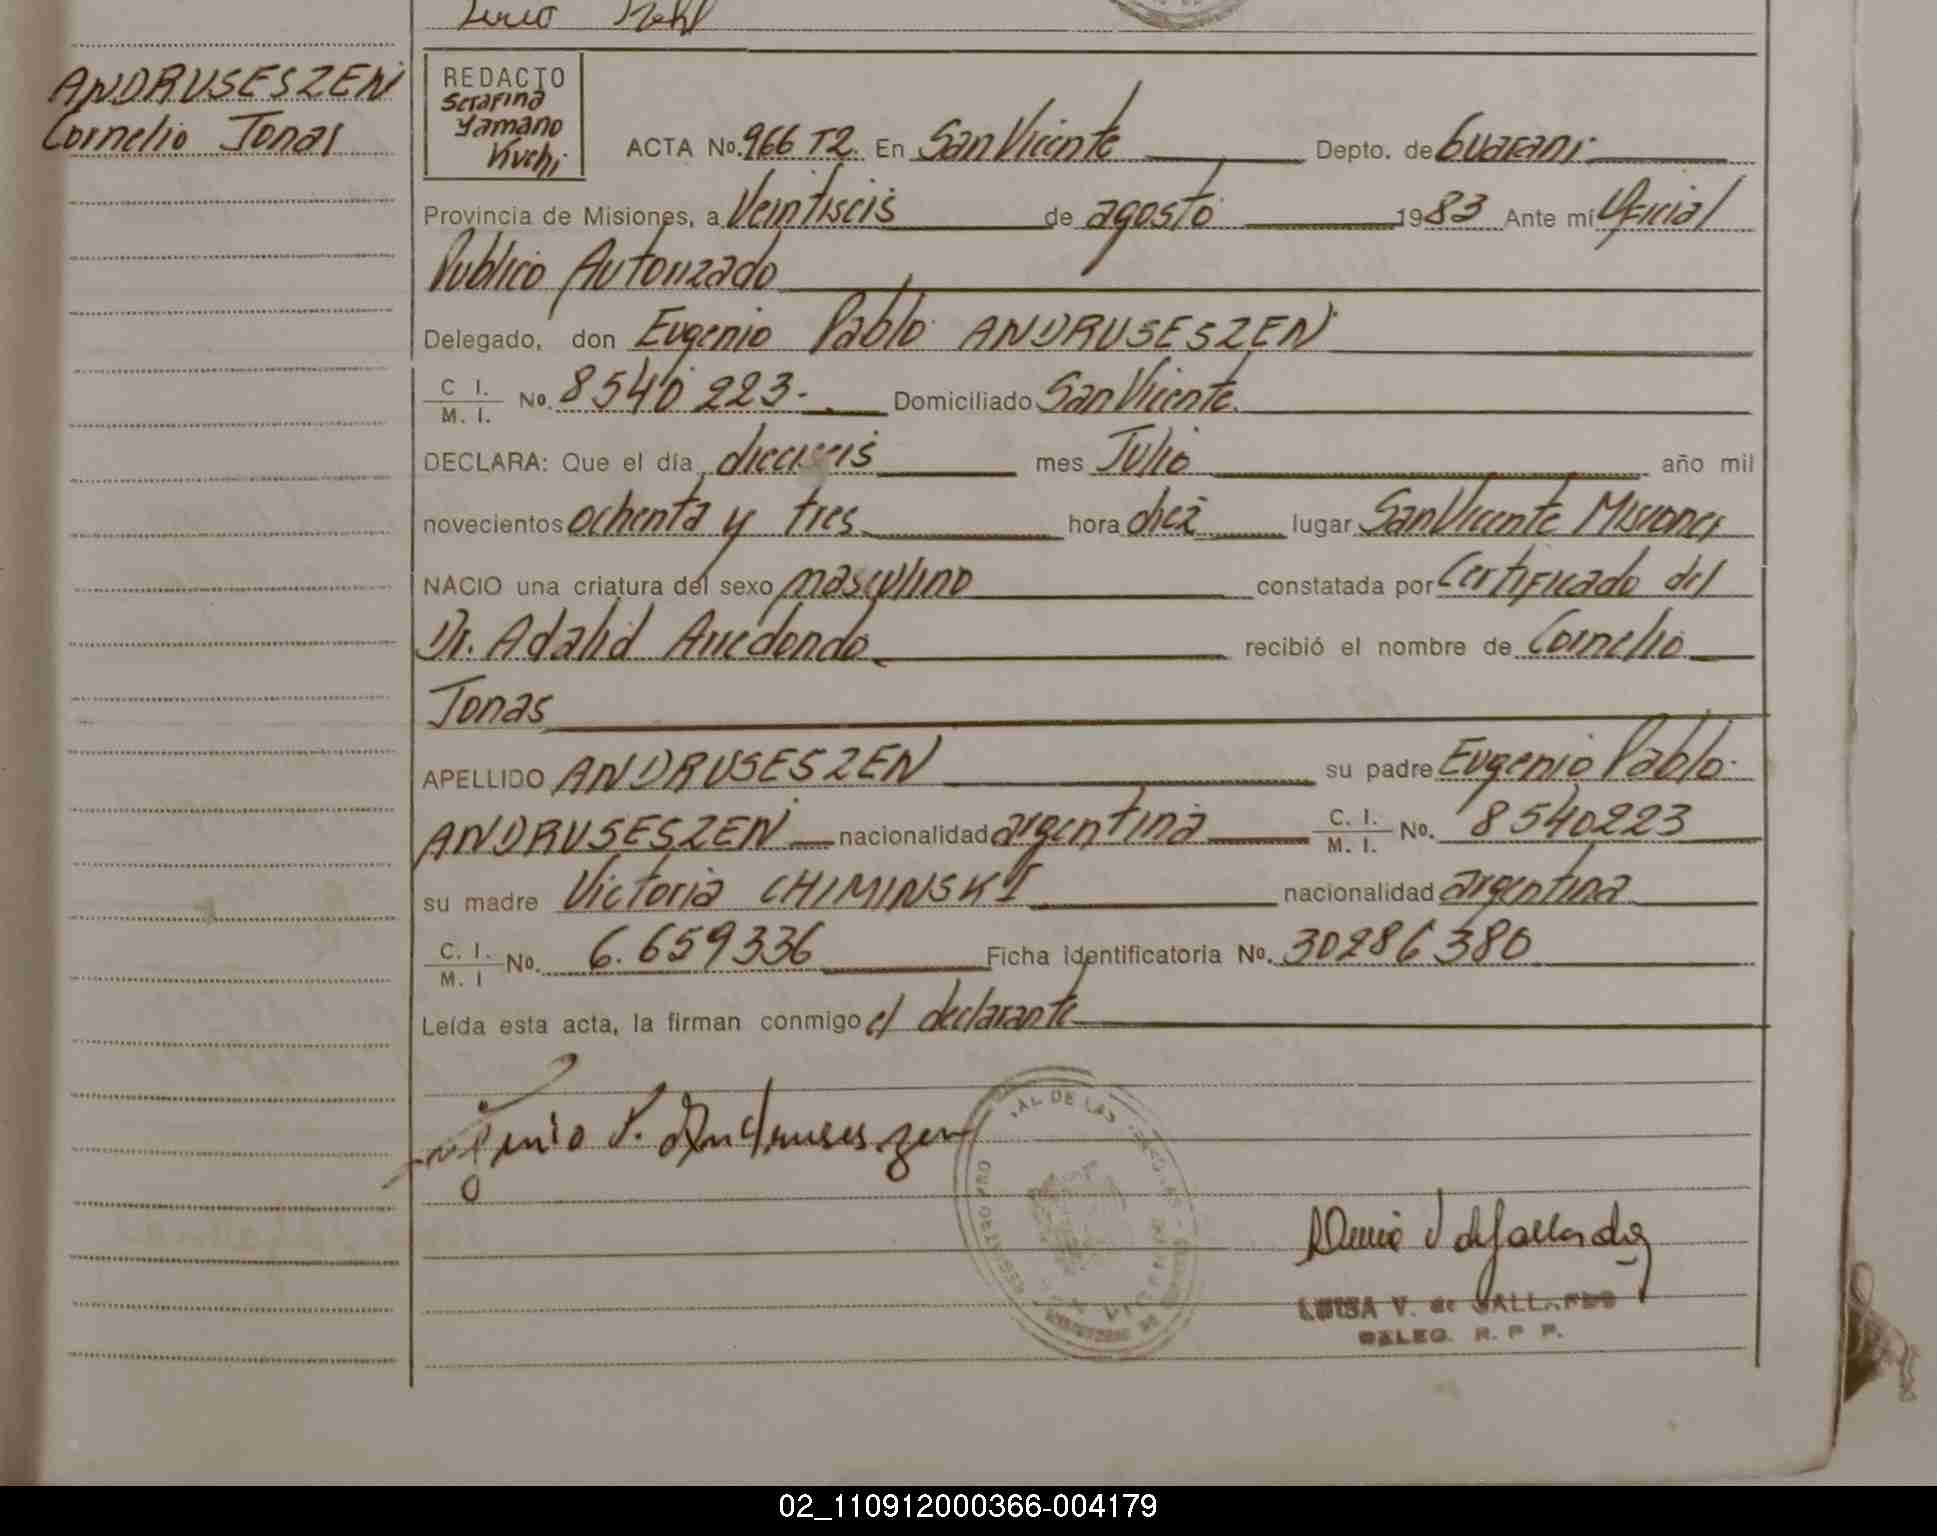 ANDRUSESZEN
Cornelio Jonas
REDACTO
Serafina
Yamano
ACTA No. 966 T2. En San Vicente Depto. de Guarani
Provincia de Misiones, a Veintiseis de agosto 1983 Ante mí Oficial
Publico Autorizado
Delegado, don Eugenio Pablo ANDRUSESZEN
C I. M. I. No. 8540 223.- Domiciliado San Vicente.
DECLARA: Que el día dieciseis mes Julio año mil
novecientos ochenta y tres hora diez lugar San Vicente Misiones
NACIO una criatura del sexo masculino constatada por Certificado del
Dr. Adalid Arredondo recibió el nombre de Cornelio
Jonas
APELLIDO ANDRUSESZEN su padre Eugenio Pablo
ANDRUSESZEN nacionalidad argentina C. I. M. I. No. 8540223
su madre Victoria CHIMINSKI nacionalidad argentina
C. I. M. I No. 6.659336 Ficha identificatoria No. 30286380
Leída esta acta, la firman conmigo el declarante
Eugenio P. Andruseszen
LUISA V. de GALLARDO
DELEG. R. P P.
02_110912000366-004179